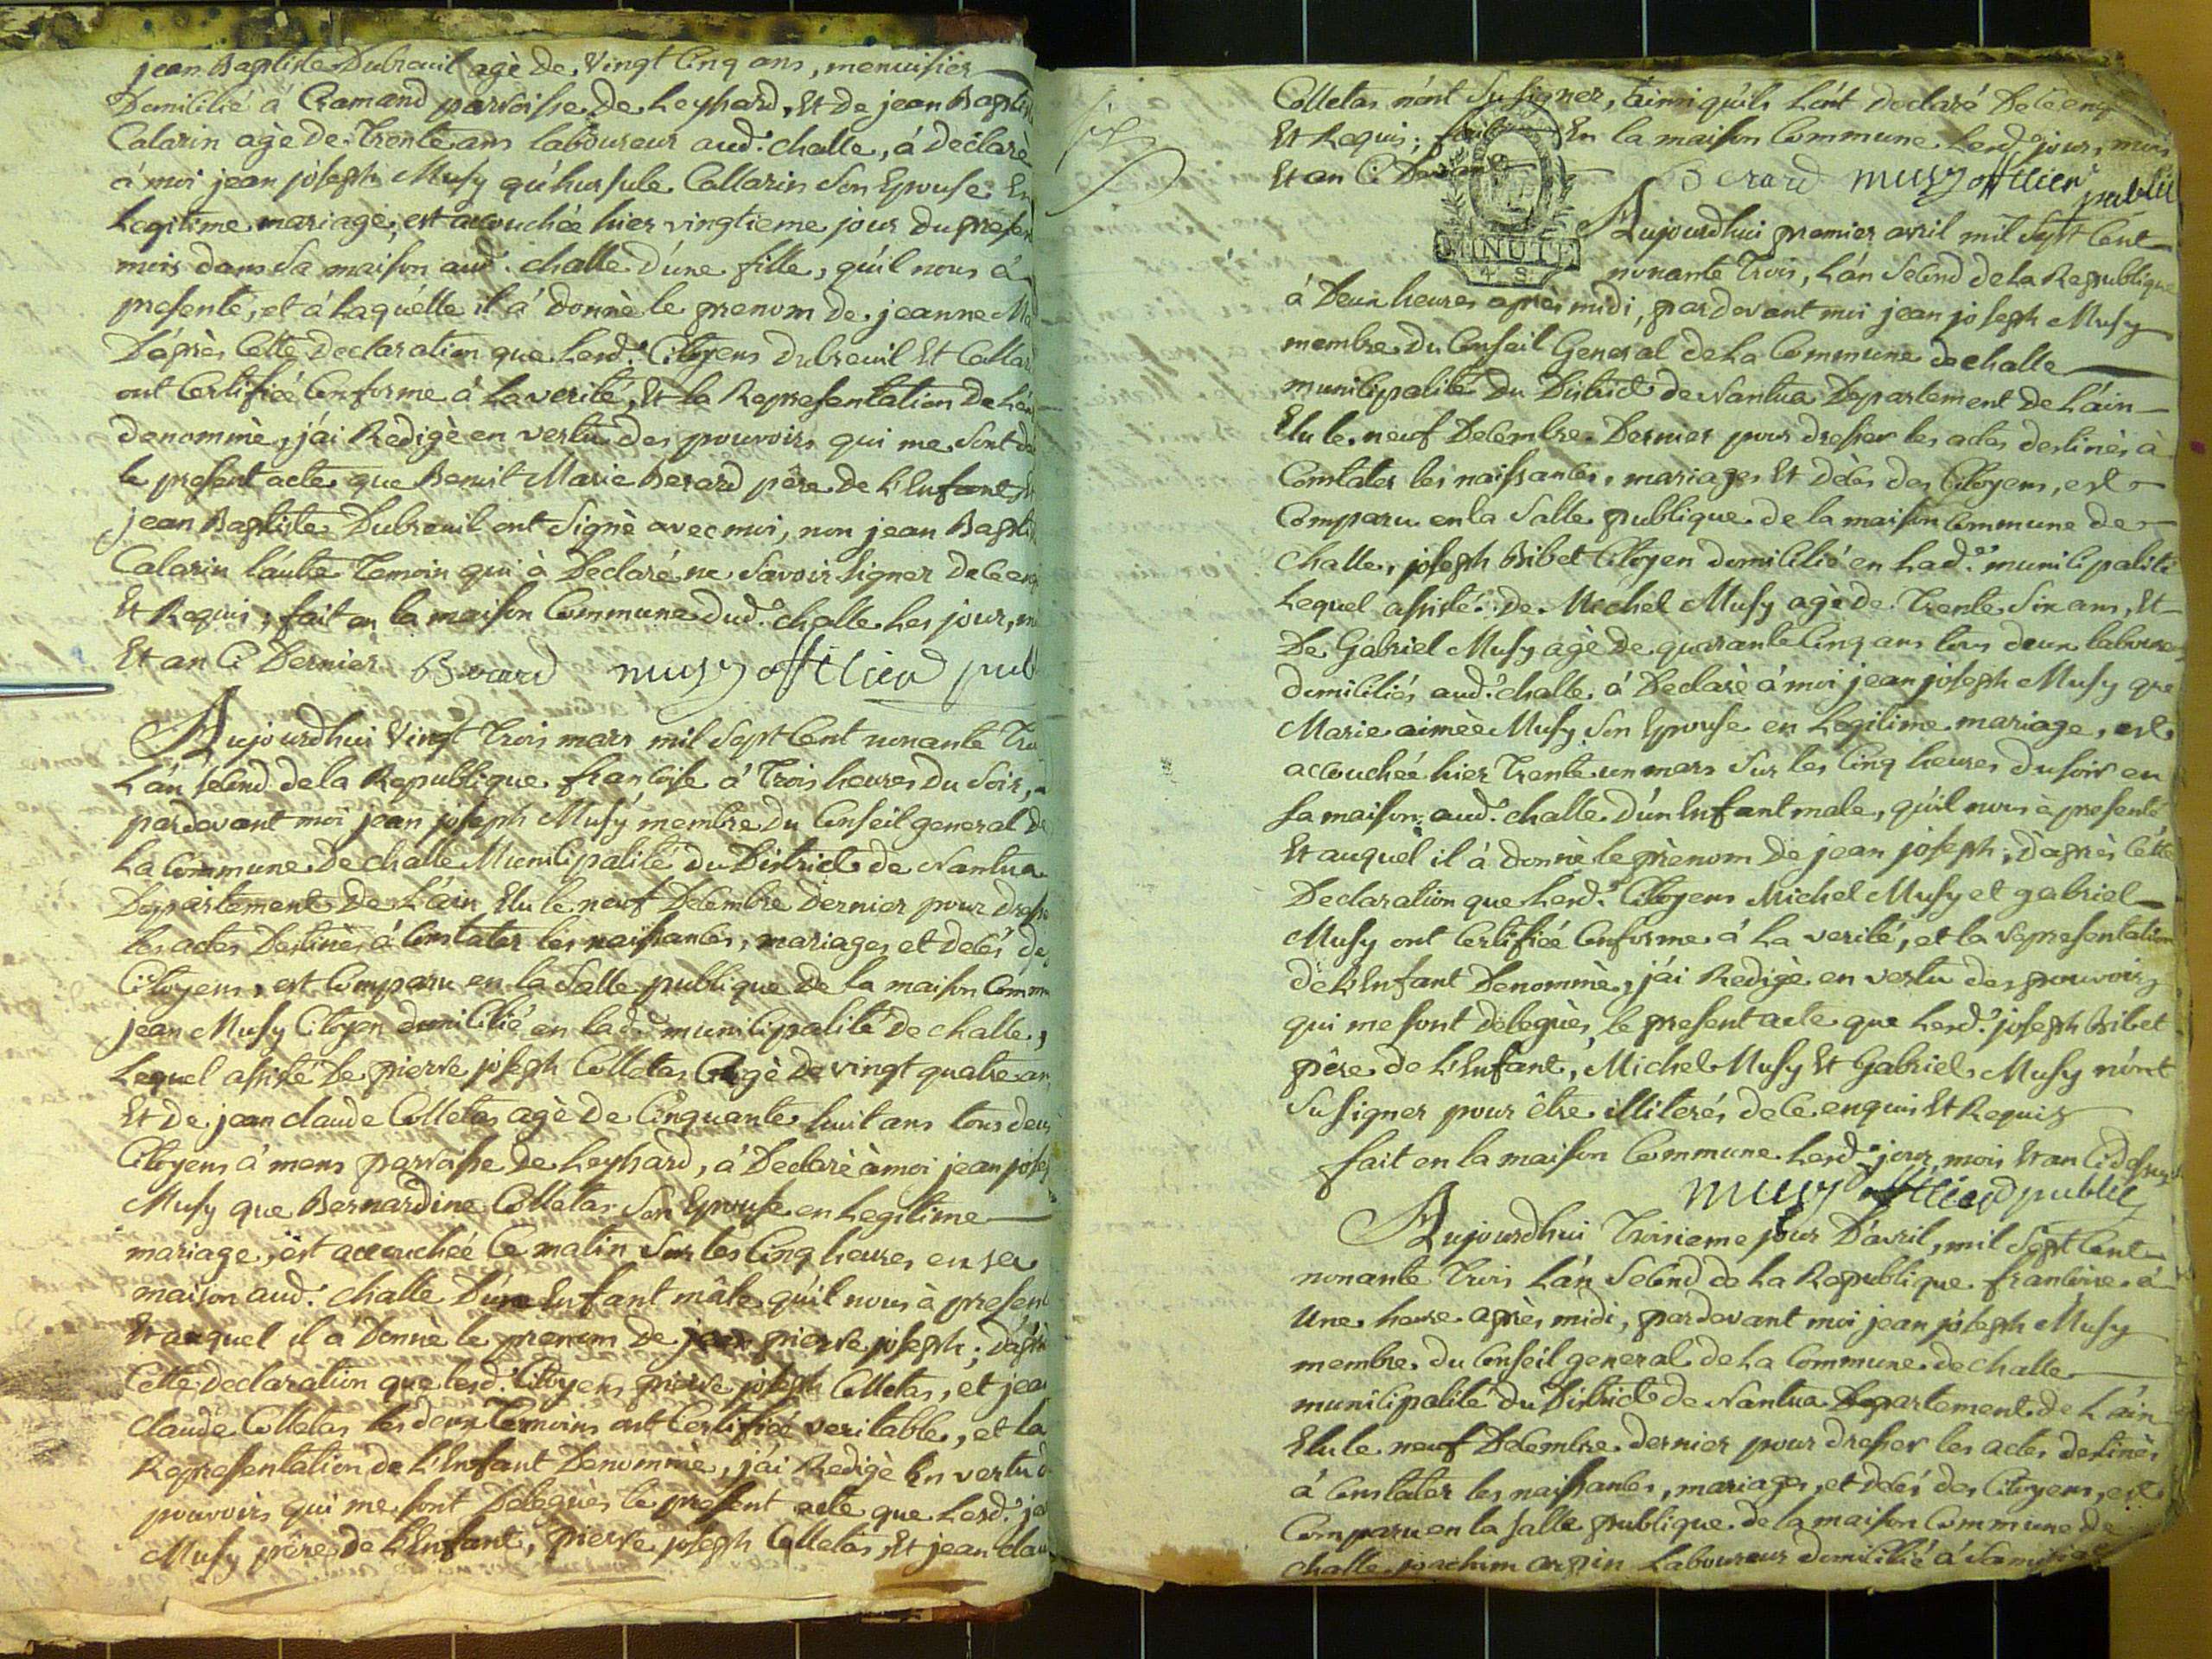 jean Baptiste Dubreuil agè de Vingt Cinq ans, menuisier
Domicilié à Cramand paroisse de Leyssard, Et de jean Baptis
Calarin agè de Trente ans laboureur aud. challe, à déclarè
à moi jean joseph Musy qu'hursule Callarin son Epouse En
Legitime mariage, est accouchée hier vingtieme jour du presen
mois dans sa maison aud. challe d'une fille, qu'il nous à
presenté, et à Laquelle il à donnè le prenom de jeanne Ma
D'après Cette Declaration que Lesd. Citoyens dubreuil Et Callar
ont Certifiée Conforme à La verité, Et la Representation De L'en
denommè, j'ai Redigè en vertu des pouvoirs qui me sont de
le present acte que Benoit Marie Berard père de L'Enfant Et
jean Baptiste Dubreuil ont signè avec moi, non jean Baptis
Calarin l'autre Temoin qui à Declaré ne savoir signer de Ce enq
Et Requis; fait en la maison Commune dud. challe Les jour, m
Et an Ci Dernier Berard musy officier publ
Aujourdhui Vingt Trois mars mil sept Cent nonante Tro
L'an second de la Republique francoise à Trois heures Du soir,
pardevant moi jean joseph Musy membre Du Conseil general de
La Commune De challe Municipalité Du District de Nantua
Departement De L'ain Elu le neuf Décembre Dernier pour dresse
les actes Destinès à Constater les naissances, mariages et décès de
Citoyens, est Comparu en la salle publique De la maison Commu
jean Musy Citoyen domicilié en lad. municipalité de challe,
Lequel assisté De pierre joseph Colletas agè De vingt quatre an
Et de jean claude Colletas agè De Cinquante huit ans tous deux
Citoyens à mens paroisse De Leyssard, à Declarè à moi jean josep
Musy que Bernardine Colletas son Epouse en Legitime
mariage, est accouchée Ce matin sur les Cinq heures en sa
maison aud. challe D'un Enfant mâle qu'il nous à presen
Et auquel il à Donnè le prenom de jean pierre joseph; D'apr
Cette declaration que lesd. Citoyens pierre joseph Colletas, et jean
claude Colletas les deux Temoins ont Certifiée veritable, et la
Representation de L'Enfant Denommè, j'ai Redigè En vertu d
pouvoirs qui me sont Deleguès le present acte que Lesd. je
Musy père de L'Enfant, pierre joseph Colletas, Et jean clau
Colletas n'ont su signer, ainsi qu'ils L'ont declaré De Ce enq
Et Requis; fait En la maison Commune Lesd. jour, mois
Et an Ci Devant Berard musy officier public
MINUTE
4. S.
Aujourdhui premier avril mil sept Cent
nonante Trois, L'an second de La Republique
à Deux heures après midi, pardevant moi jean joseph Musy
membre Du Conseil General de La Commune de challe
municipalité Du District de Nantua Departement De L'ain
Elu le neuf Décembre Dernier pour dresser les actes destinès à
Constater les naissances, mariages Et Dècès Des Citoyens, est
Comparu en la salle publique de la maison Commune de
challe, joseph Bibet Citoyen domicilié en Lad. municipalité
Lequel assisté de Michel Musy agè de Trente six ans, Et
De Gabriel Musy agè de quarante Cinq ans tous deux laboureurs
domiciliés aud. challe à Declarè à moi jean joseph Musy que
Marie aimèe Musy son Epouse en Legitime mariage, est
accouchée hier Trente un mars sur les Cinq heures du soir en
sa maison aud. challe D'un Enfant male, qu'il nous à presenté
Et auquel il à Donnè le prènom De jean joseph; d'après Cette
Declaration que Lesd. Citoyens Michel Musy et gabriel
Musy ont Certifiée Conforme à La verité, et la representation
de L'Enfant Denommè, j'ai Redigè en vertu des pouvoirs
qui me sont délegués, le present acte que Lesd. joseph Bibet
père de L'Enfant, Michel Musy Et Gabriel Musy n'ont
su signer pour être illiterés de Ce enquis Et Requis
fait en la maison Commune Lesd. jour, mois Et an Ci dessus
musy officier public
Aujourdhui Troisieme jour D'avril, mil sept Cent
nonante Trois L'an second de La Republique francoise à
Une heure après midi, pardevant moi jean joseph Musy
membre Du Conseil general de La Commune de challe
municipalité du District de Nantua Departement de L'ain
Elu le neuf Décembre dernier pour dresser les actes destinès
à Constater les naissances, mariages, et décés des Citoyens, est
Comparu en la salle publique de la maison Commune de
challe joachim arpin Laboureur domicilié à